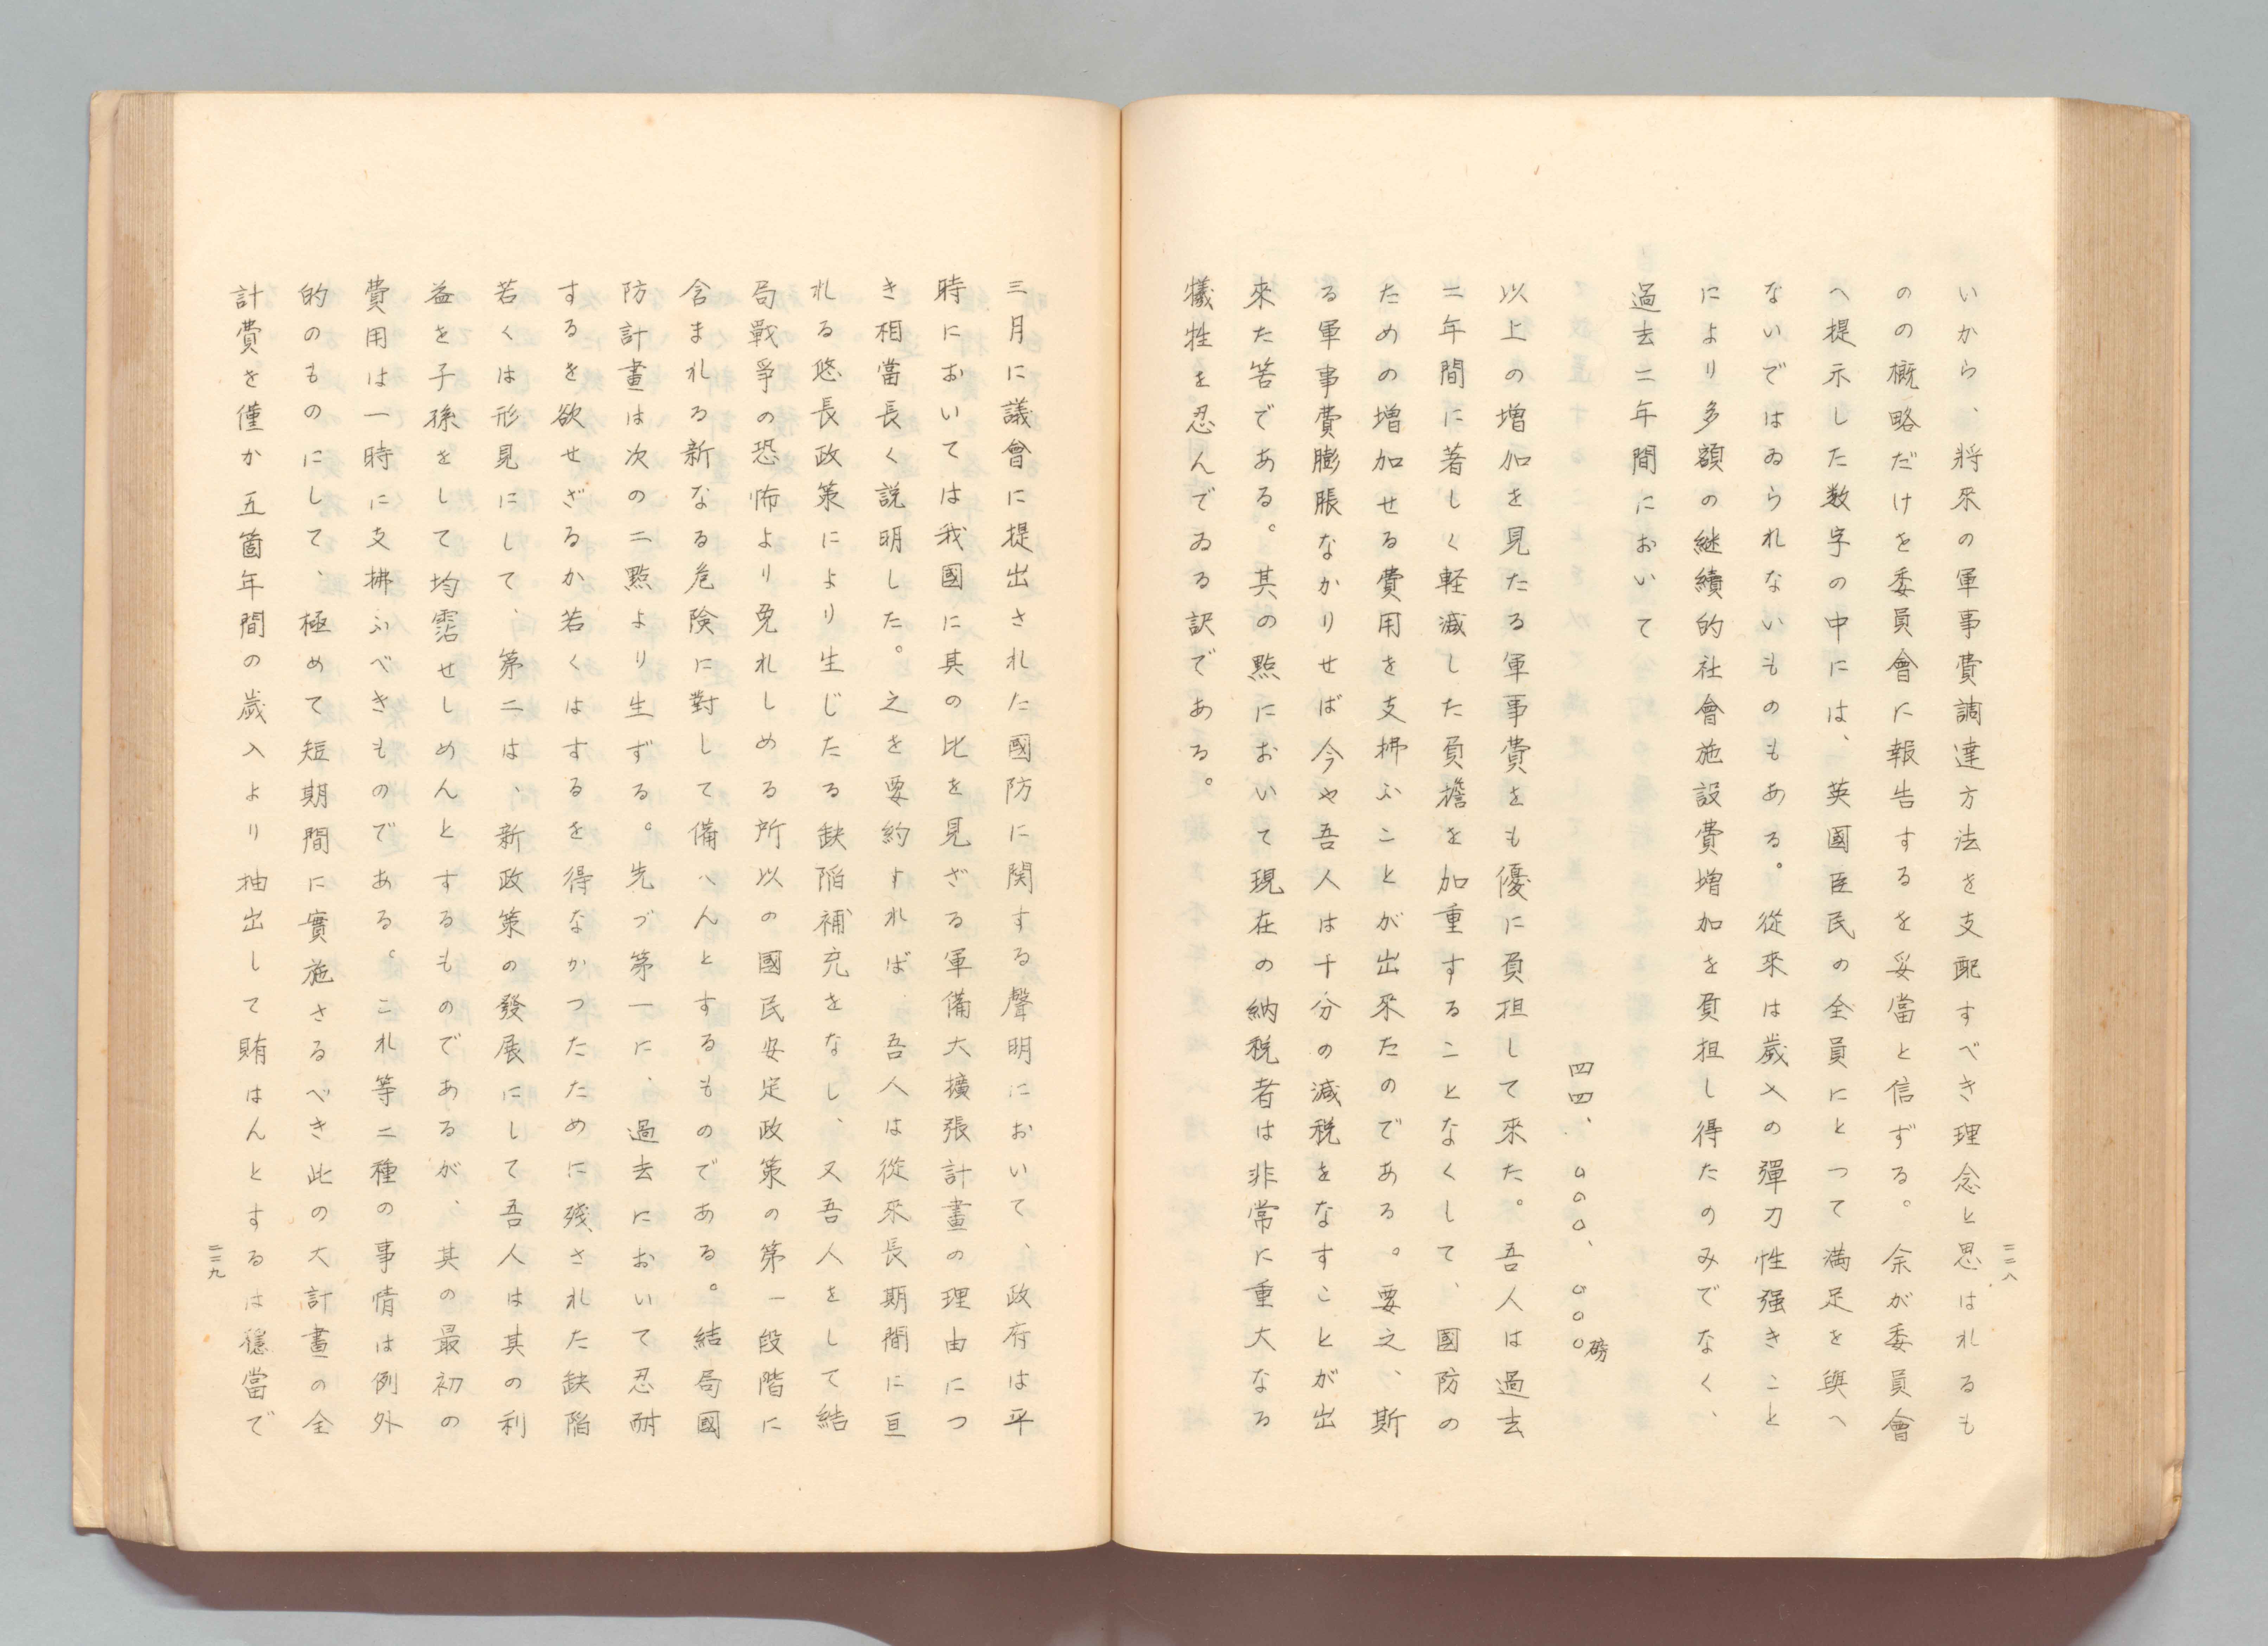 いから、將來の軍事費調達方法を支配すべき理念と思はれるも
のの概略だけを委員會に報告するを妥當と信ずる。余が委員會
へ提示した数字の中には、英國臣民の全員にとつて満足を與へ
ないではゐられないものもある。從來は歳入の彈力性强きこと
により多額の継續的社會施設費増加を負担し得たのみでなく、
過去二年間において
四四、〇〇〇、〇〇〇磅
以上の増加を見たる軍事費をも優に負担して來た。吾人は過去
二年間に著しく軽減した負擔を加重することなくして、國防の
ための増加せる費用を支拂ふことが出來たのである。要之、斯
る軍事費膨脹なかりせば今や吾人は十分の減税をなすことが出
來た筈である。其の點において現在の納税者は非常に重大なる
犠牲を忍んでゐる訳である。
二二八
三月に議會に提出された國防に関する聲明において、政府は平
時においては我國に其の比を見ざる軍備大擴張計畫の理由につ
き相當長く説明した。之を要約すれば、吾人は從來長期間に亘
れる悠長政策により生じたる缺陥補充をなし、又吾人をして結
局戰爭の恐怖より免れしめる所以の國民安定政策の第一段階に
含まれる新なる危険に對して備へんとするものである。結局國
防計畫は次の二點より生ずる。先づ第一に、過去において忍耐
するを欲せざるか若くはするを得なかつたために残された缺陥
若くは形見にして、第二は、新政策の發展にして吾人は其の利
益を子孫をして均霑せしめんとするものであるが、其の最初の
費用は一時に支拂ふべきものである。これ等二種の事情は例外
的のものにして、極めて短期間に實施さるべき此の大計畫の全
計費を僅か五箇年間の歳入より抽出して賄はんとするは穩當で
二二九